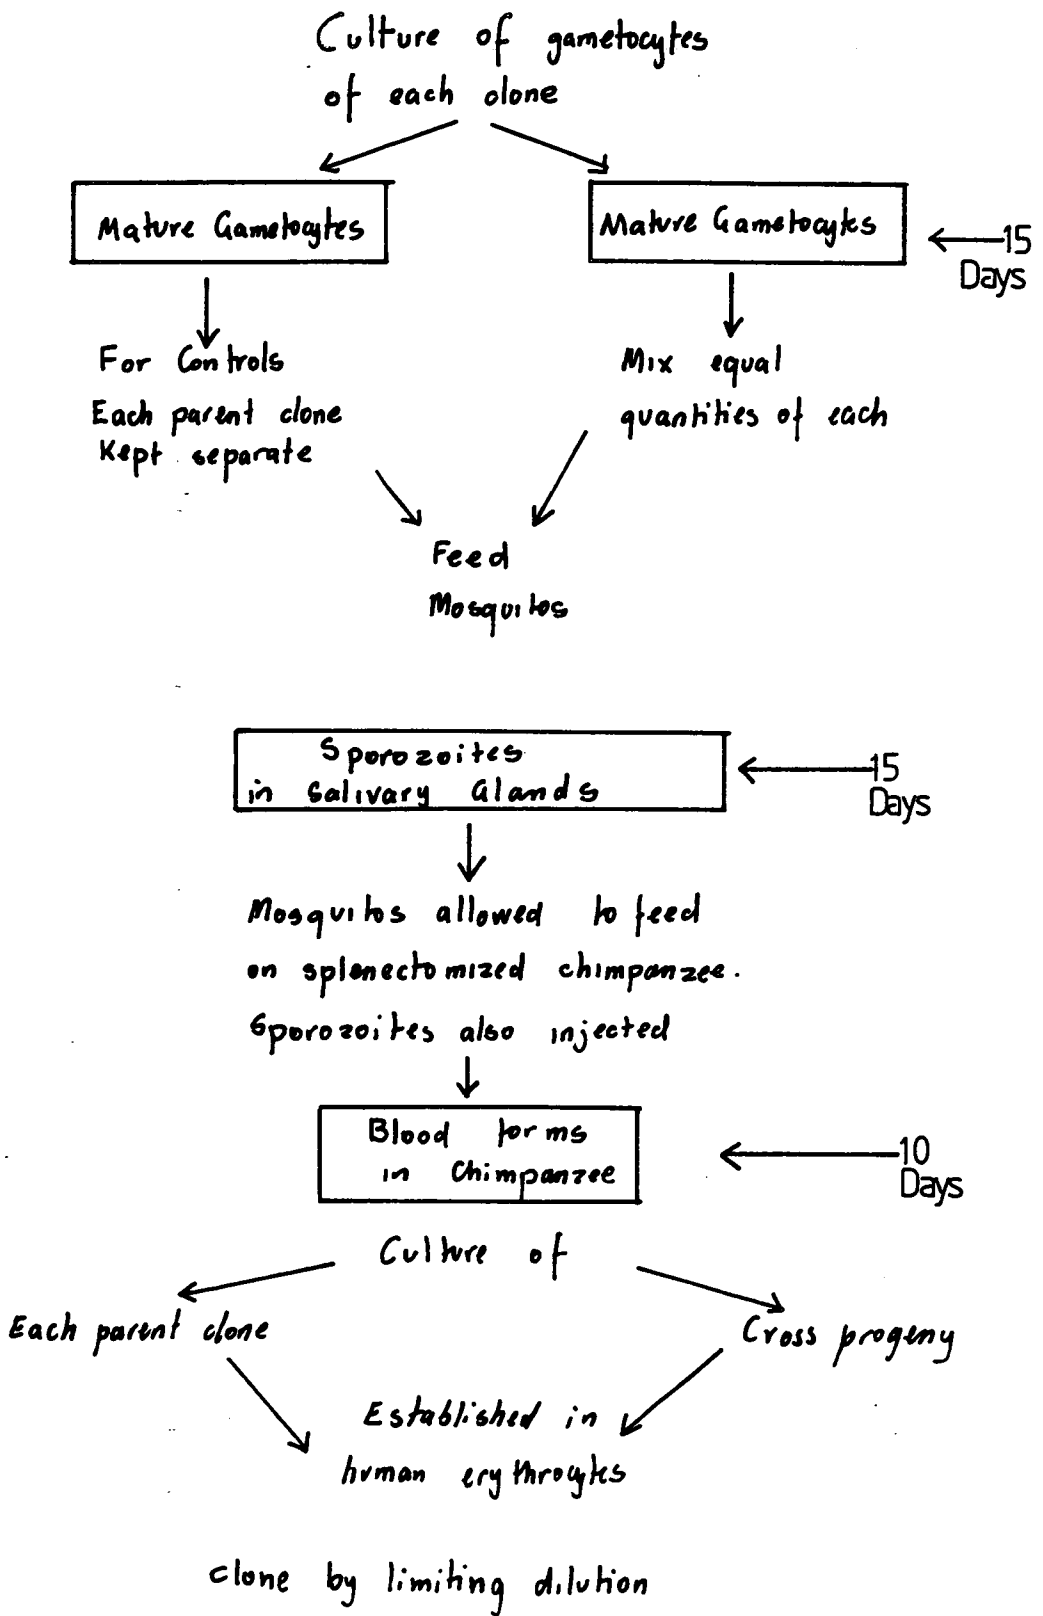 Culture of gametocytes
of each clone
Mature Gametocytes
Mature Gametocytes
15
Days
For Controls
Each parent clone
Kept separate
Mix equal
quantities of each
Feed
Mosquitos
Sporozoites
in Salivary Glands
15
Days
Mosquitos allowed to feed
on splenectomized chimpanzee.
Sporozoites also injected
Blood forms
in Chimpanzee
10
Days
Culture of
Each parent clone
Cross progeny
Established in
human erythrocytes
clone by limiting dilution